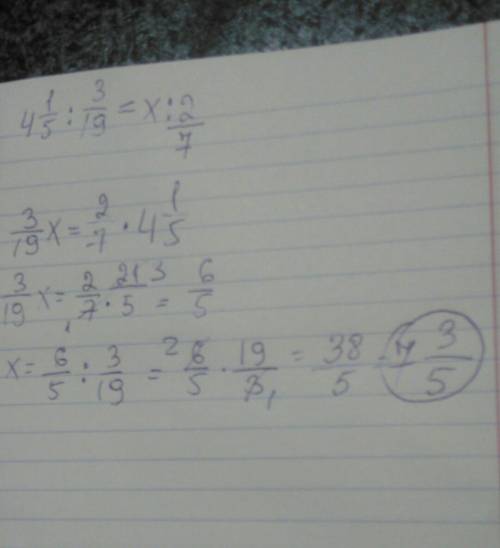 4 1/5 : 3/19 = x : 2/7
3/19 x = 2/7 · 4 1/5
3/19 x = 2/7 · 21 3/5 = 6/5
x = 6/5 : 3/19 = 2 6/5 · 19/3 1 = 38/5 = 7 3/5